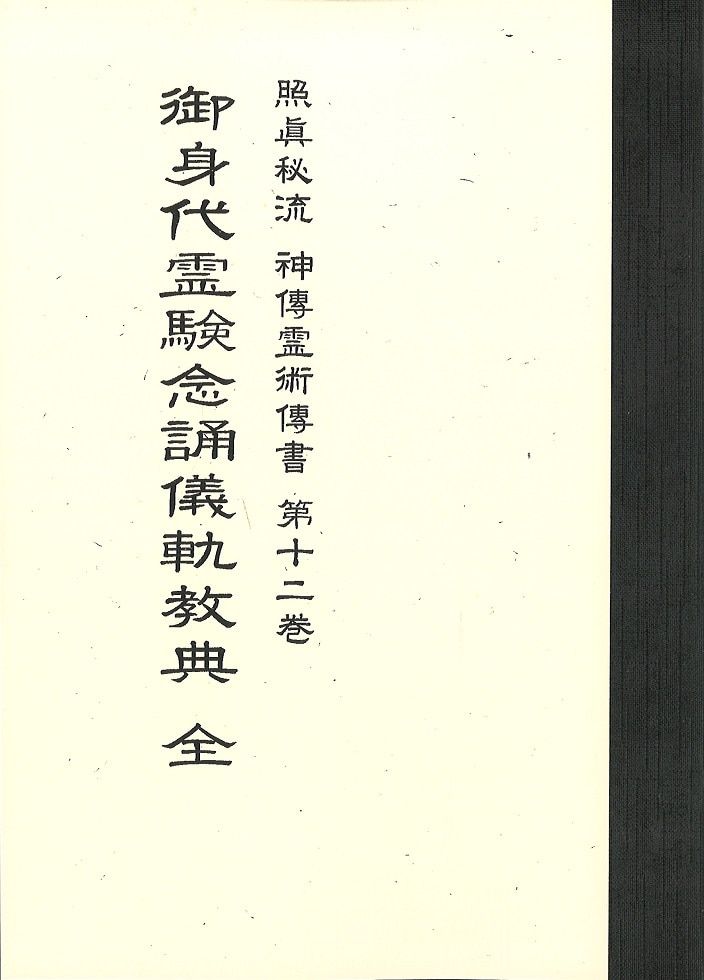 照眞秘流 神傳霊術傳書 第十二巻
御身代霊験念誦儀軌教典 全